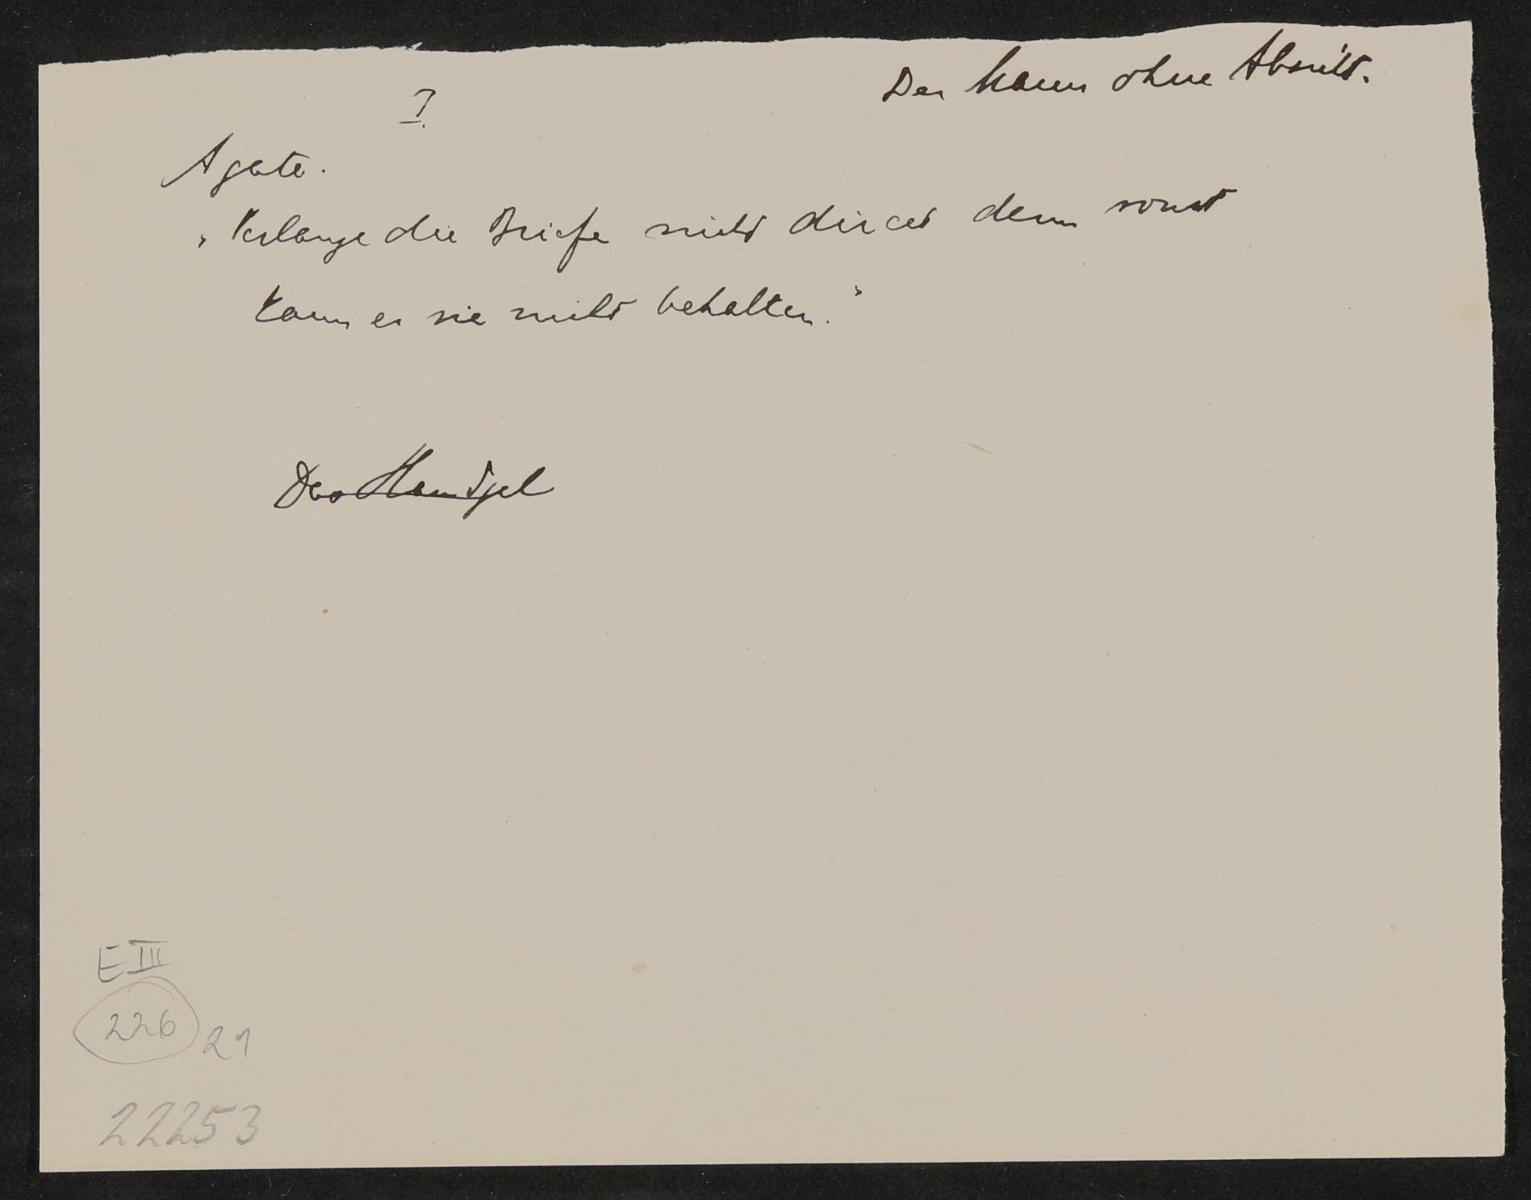 Der Mann ohne Absicht.
I.
Agate.
"Verlange die Briefe nicht direct denn sonst
kann er sie nicht behalten."
Das
E III
226
21
22253